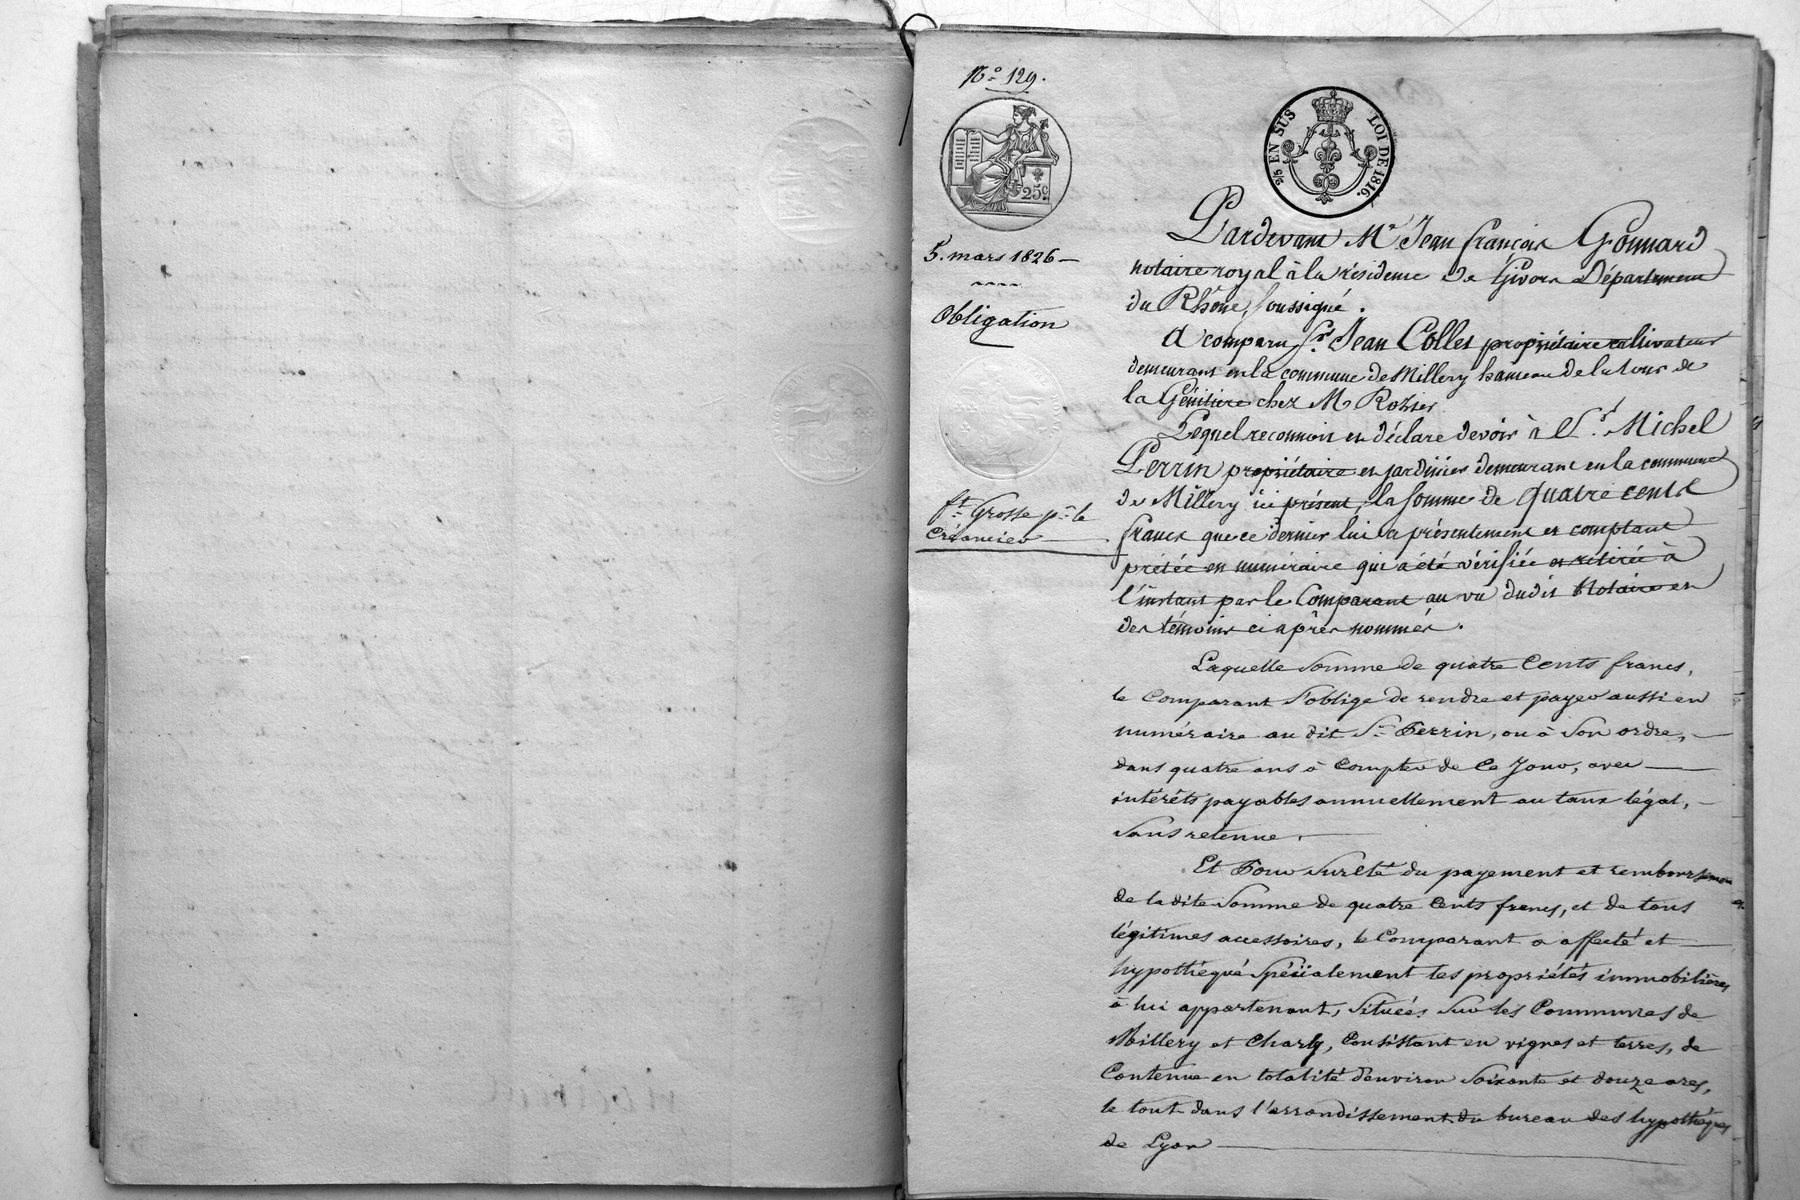 N.° 129.
25c.
2/5 EN SUS LOI DE 1816.
5. mars 1826
Obligation
ft. Grosse pr. le
Créancier
Pardevant Me Jean françois Gonnard
notaire royal à la résidence de Givors Département
du Rhône, soussigné.
A comparu Sr. Jean Collet propriétaire cultivateur
demeurant en la commune de Millery hameau de la tour de
la chez M Rozier
Lequel reconnoit et déclare devoir à Sr. Michel
Perrin propriétaire et jardinier demeurant en la commune
de Millery ici présent, la somme de quatre cents
francs que ce dernier lui a présentement et comptant
prêtée en numéraire qui a été vérifiée et retirée à
l'instant par le Comparant au vu dudit Notaire et
des témoins ci après nommés.
Laquelle Somme de quatre Cents francs,
le Comparant S'oblige de rendre et payer aussi en
numéraire au dit Sr. Perrin, ou à Son ordre,
dans quatre ans à Compter de Ce Jour, avec
intérêts payables annuellement au taux légal,
Sans retenue.
Et Pour Sureté du payement et remboursement
de la dite Somme de quatre Cents francs, et de tous
légitimes accessoires, le Comparant a affecté et
hypothéqué Spécialement les propriétés immobilières
à lui appartenant, Situées Sur les Communes de
Millery et Charly, Consistant en vignes et terres, de
Contenue en totalité d'environ Soixante et douze ares,
le tout dans l'arrondissement du bureau des hypothèques
de Lyon